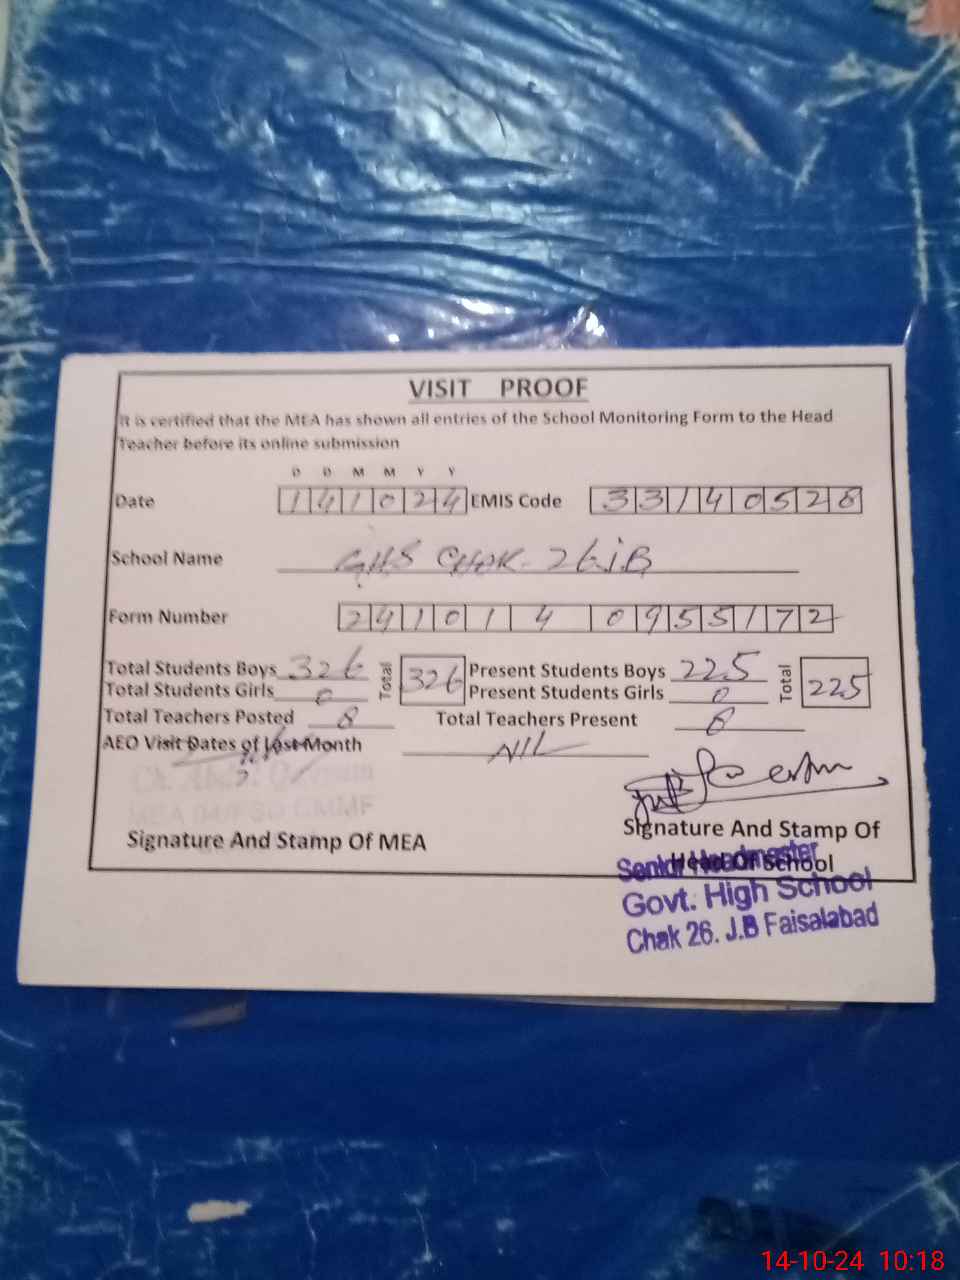 VISIT PROOF
It is certified that the MEA has shown all entries of the School Monitoring Form to the Head
Teacher before its online submission
D D M M Y Y
Date 141024 EMIS Code 33140528
School Name GHS CHAK-26J.B
Form Number 241014 0955172
Total Students Boys 326 Total 326 Present Students Boys 225 Total 225
Total Students Girls 0 Present Students Girls 0
Total Teachers Posted 8 Total Teachers Present 8
AEO Visit Dates of Last Month NIL
Signature And Stamp Of MEA
Signature And Stamp Of
Head Of School
Senior Headmaster
Govt. High School
Chak 26. J.B Faisalabad
14-10-24 10:18